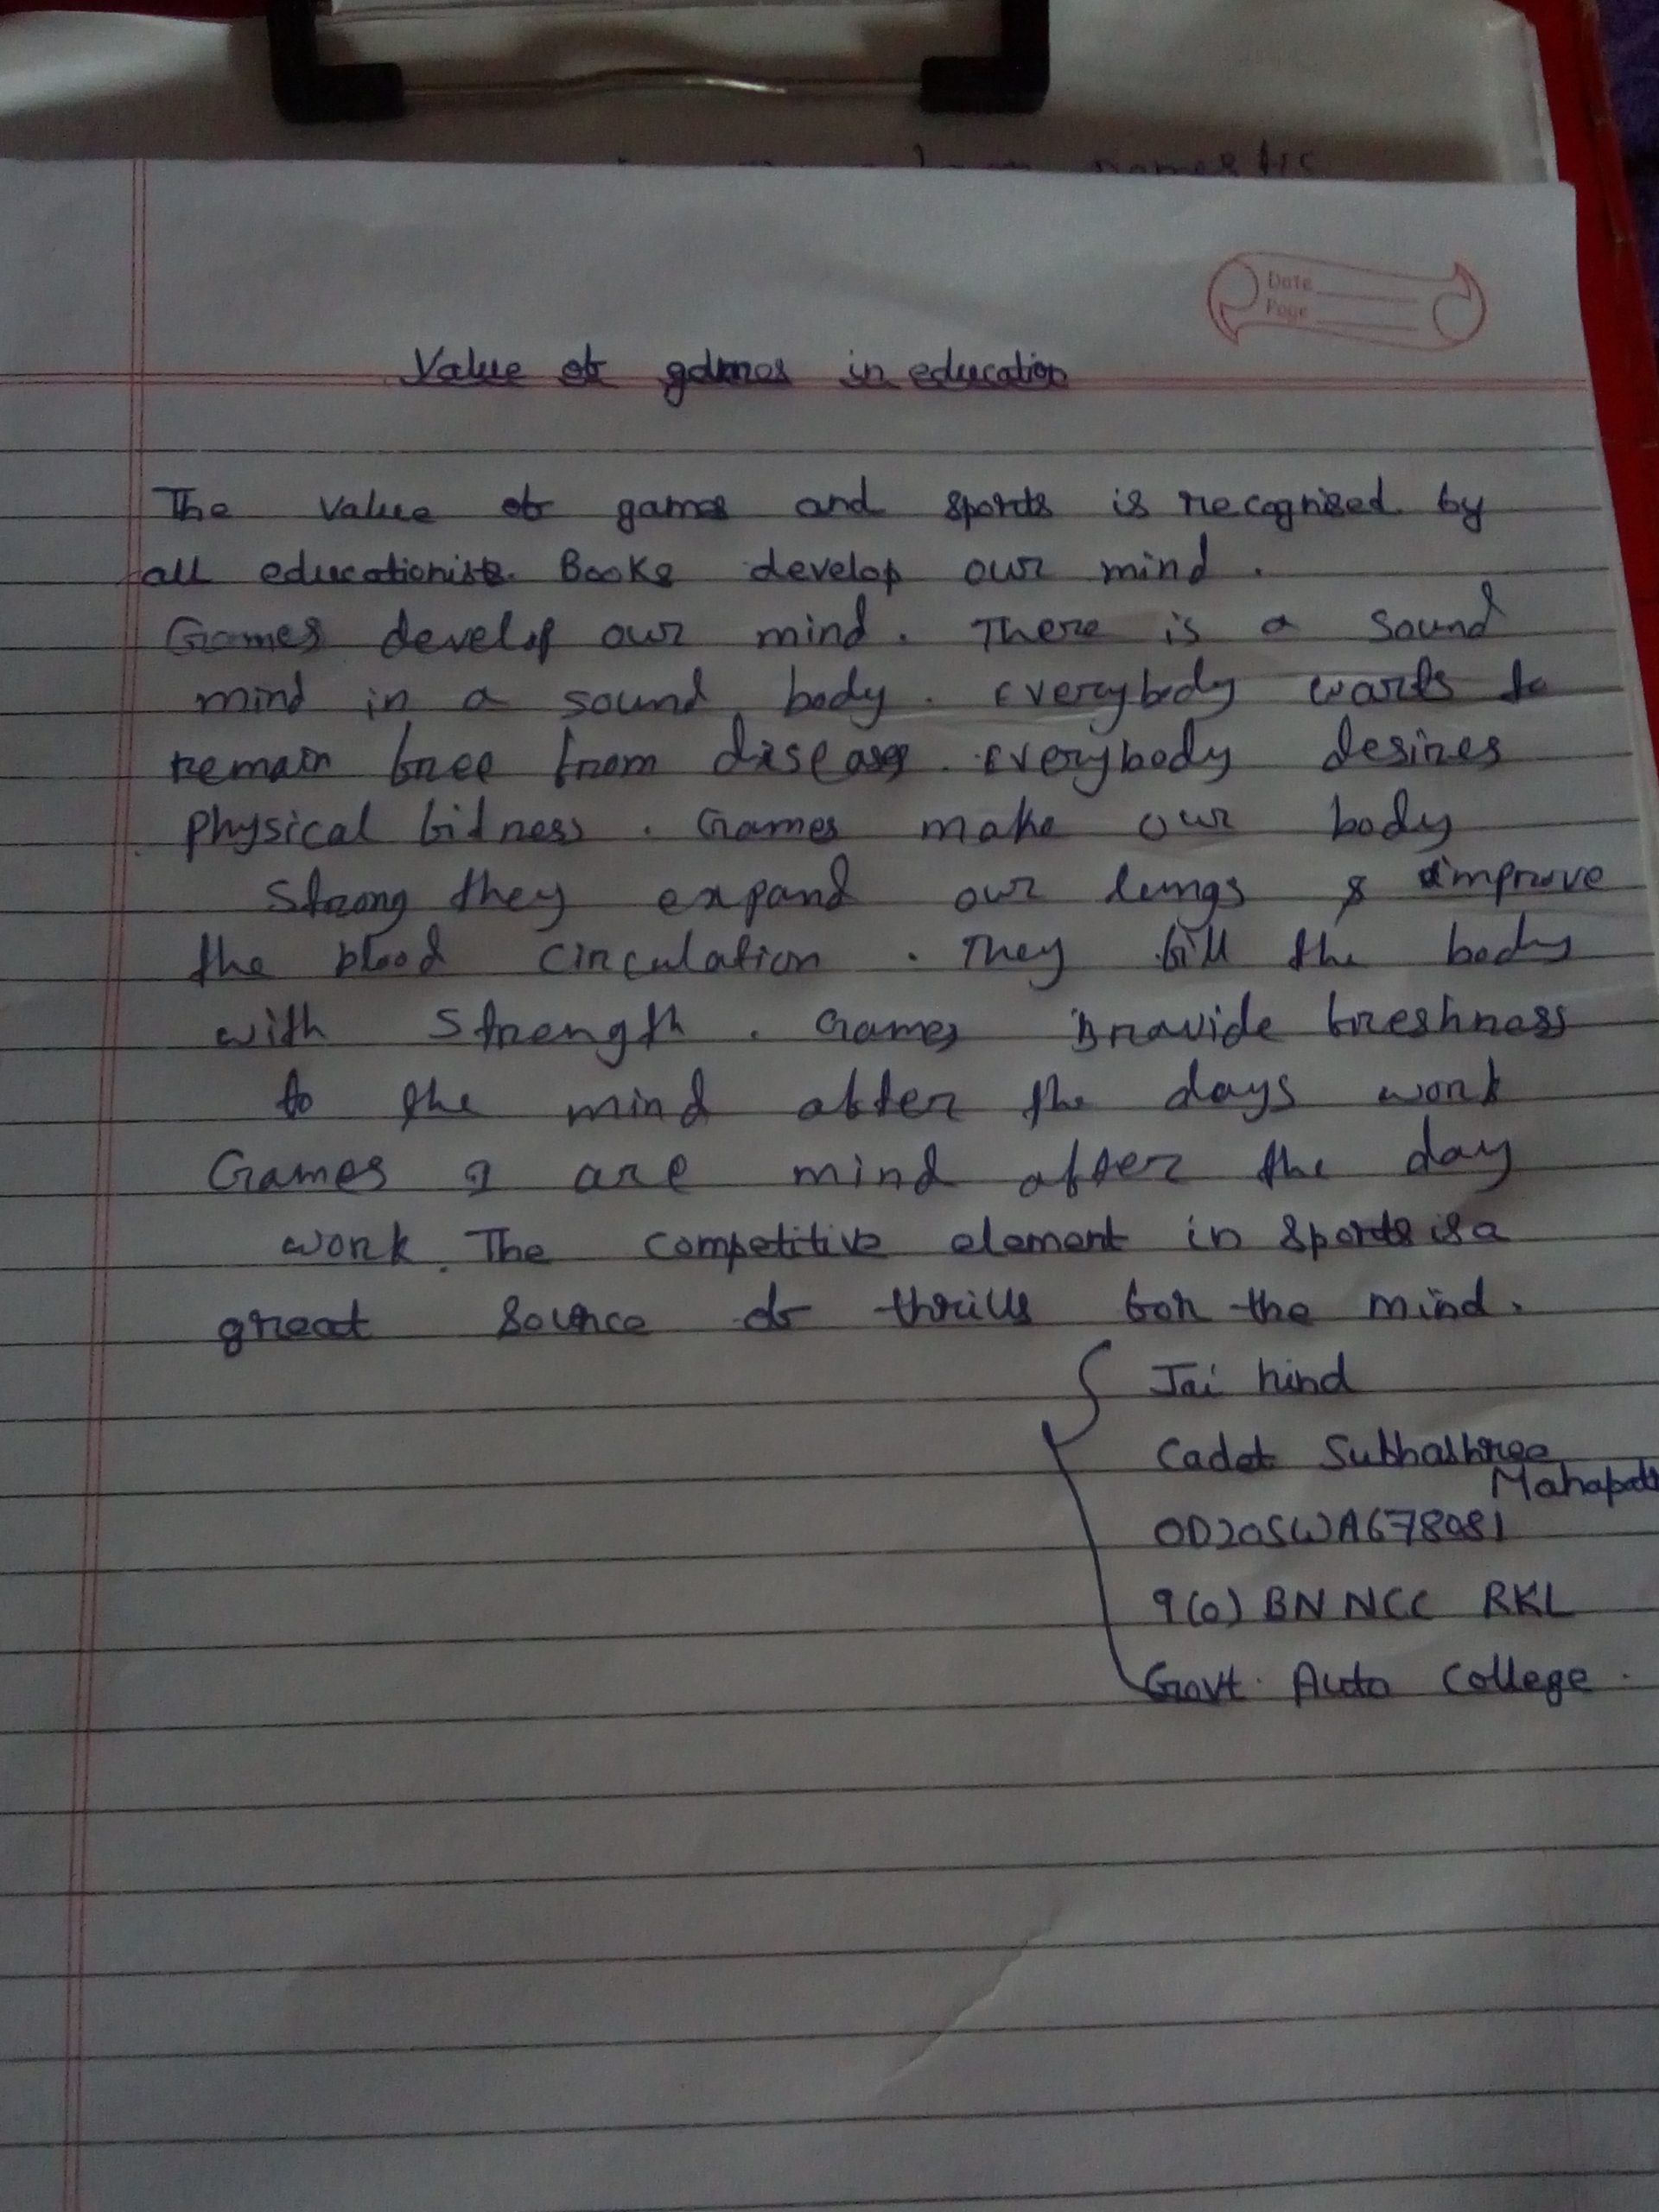 Date
Page
Value of games in education
The value of games and sports is recognised by
all educationists. Books develop our mind.
Games develop our mind. There is a sound
mind in a sound body. Everybody wants to
remain free from disease. Everybody desires
physical fitness. Games make our body
strong they expand our lungs & improve
the blood circulation. They fill the body
with strength. Games provide freshness
to the mind after the days work
Games are mind after the day
work. The competitive element in sports is a
great source of thrills for the mind.
Jai hind
Cadet Subhashree
OD20SWA678081
9(O) BN NCC RKL
Govt. Auto College.